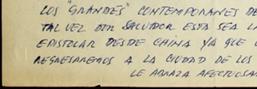 LOS "GRANDES" CONTEMPORANES DE
TAL VEZ DON SALVADOR ESTA SEA LA
EPISTOLAR DESDE CHINA YA QUE
REGRESAREMOS A LA CIUDAD DE LOS
LE ABRAZA AFECTUOSAM